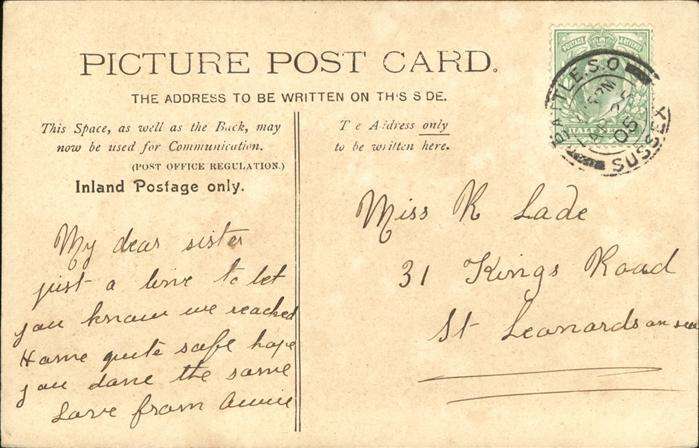 PICTURE POST CARD.
THE ADDRESS TO BE WRITTEN ON THIS S DE.
This Space, as well as the Back, may
now be used for Communication.
(POST OFFICE REGULATION.)
Inland Postage only.
T e Address only
to be written here.
POSTAGE
HALF PENNY
BATTLE.S.O
05
SUSSEX
My dear sister
just a line to let
you know we reached
Home quite safe hope
you done the same
Love from Annie
Miss K Lade
31 Kings Road
St Leonards on sea